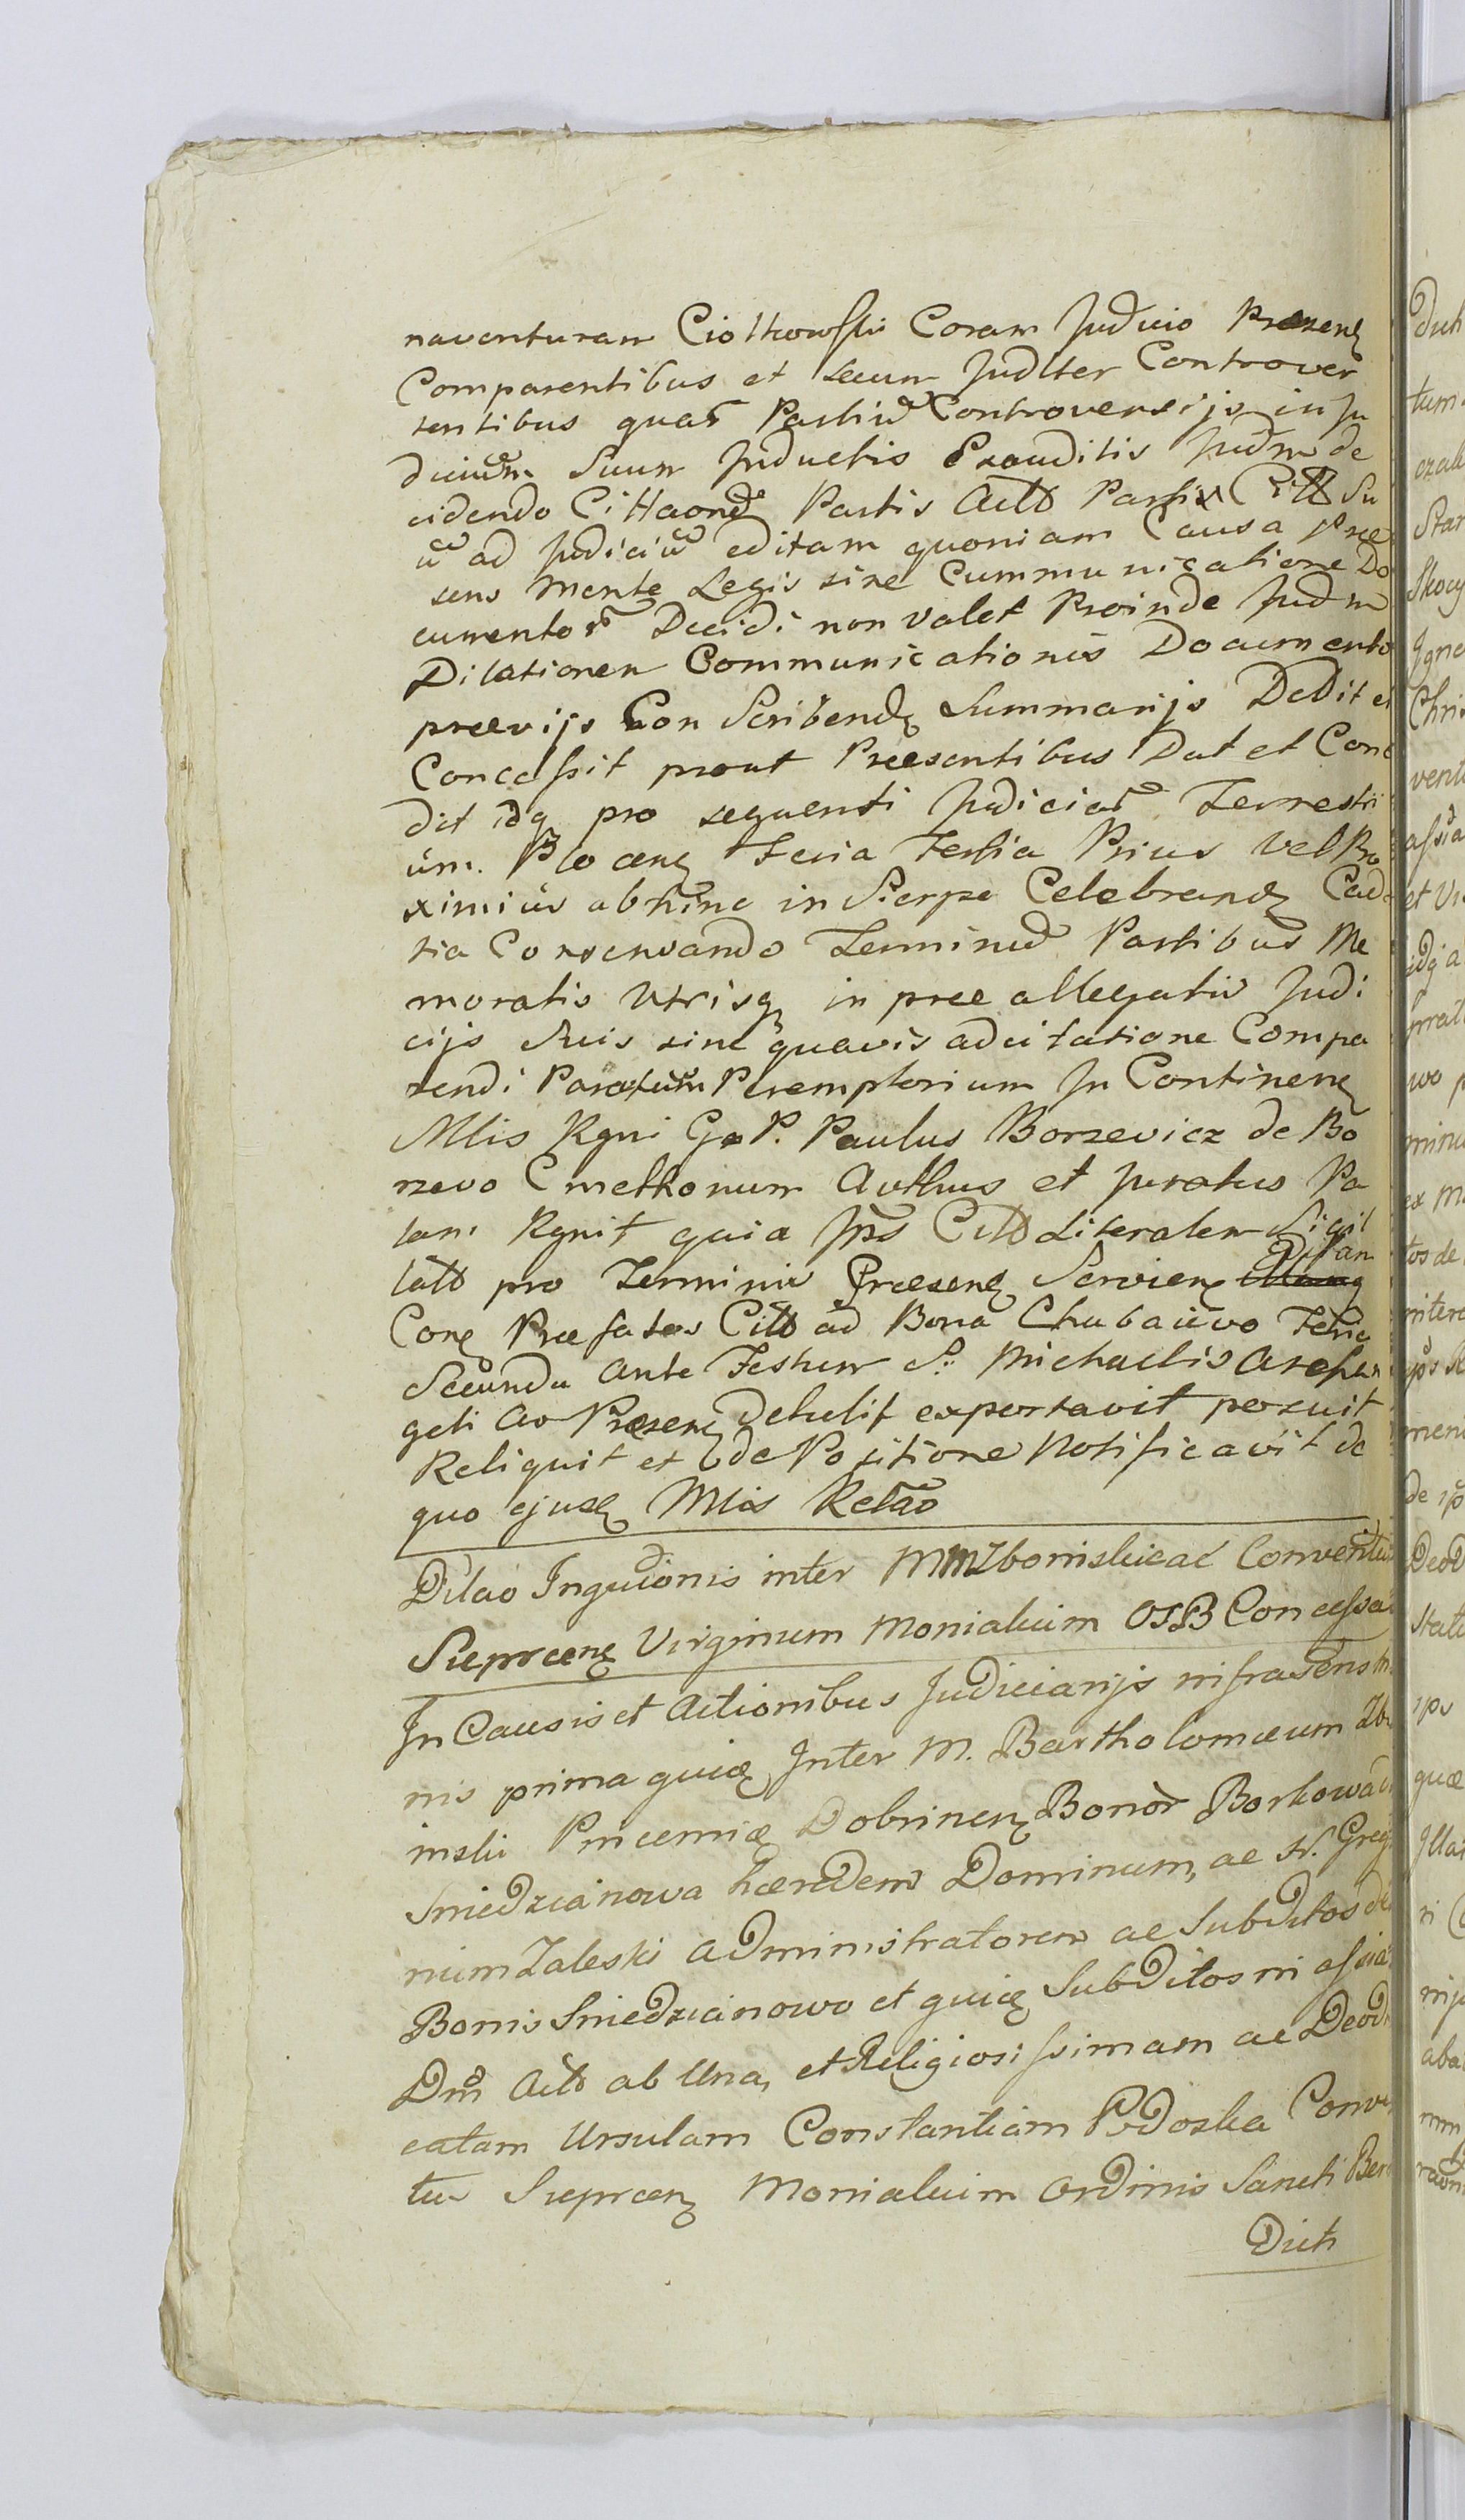 naventuram Ciołkowski Coram Judicio Præsenꝫ
Comparentibus et secum Judlter Controver
tentibus quar̃ Partiũ Controversijs in Ju
diciũm Suum Inductis Exauditis Judm de
cidendo Cittaonẽ Partis Actt Partis Citt Su
ũ ad Judiciũ editam quoniam Causa Præ
sens Mente Legis sine Cummunicatione Do
cumentor̃ Decidi non valet Proinde Judm
Dilationem Communicationis Documento
prævijs Con Scribendꝫ Summarijs Dedit et
Concessit prout Præsentibus Dat et Conc
dit idq pro sequenti Judiciar̃ Terrestri
um. Plocenꝫ Feria Tertia Prius vel Pro
ximius abhinc in Sierpc Celebrandꝫ Cad
tia Conservando Terminũ Partibus Me
moratis Utrisqꝫ in præ allegatis Judi
cijs Suis sine quavis adcitatione Compa
rendi Paratum Peremptorium In Continenꝫ
Mlis Rgni G. P. Paulus Borzevicz de Bo
rzevo Cmethonum Authus et Juratus Pa
lam Rgnit quia Jps Citt Literalem Sigil
latt pro Terminis Præsenꝫ Servienꝫ
Conꝫ Præfatos Citt ad Bona Chabaiewo Feria
Secunda Ante Festum S. Michaelis Archan
geli Ao Præsenꝫ Detulit exportavit posuit
Reliquit et de Positione Notificavit de
quo ejusꝫ Mlis Relão
Dilao Inquionis inter MM Zboinskie ac Conventu
Sieprcenꝫ Virginum Monialium OSB Concessa
In Causis et Actionibus Judiciarijs infra
nis prima quiꝫ Inter M. Bartholomæum Zbo
inski Pincernæ Dobrinenꝫ Bonor̃ Borkowa
Sniedzianowa hæredem Dominum, ac N. Greg
rium Zaleski Administratorem ac Subditos de
Bonis Sniedzianowo et quiꝫ Subditos in assia
Dm̃ Actt ab Una, et Religiosissimam ac Deodi
catam Ursulam Constantiam Podoska Conve
tus Sieprcenꝫ Monialium Ordinis Sancti Bene
Dicti